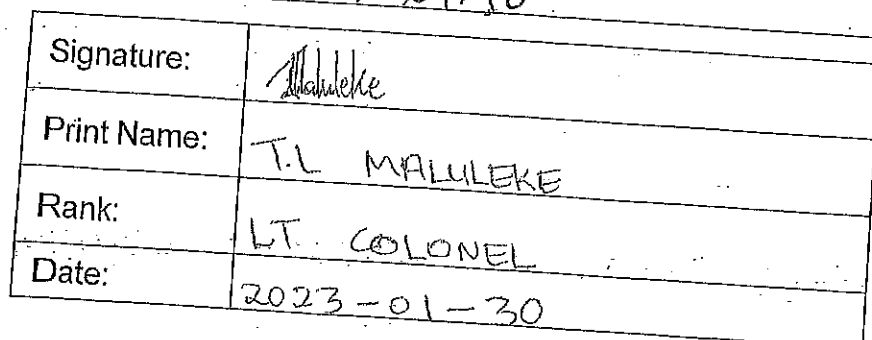 Signature: Maluleke
Print Name: T.L MALULEKE
Rank: LT. COLONEL
Date: 2023-01-30